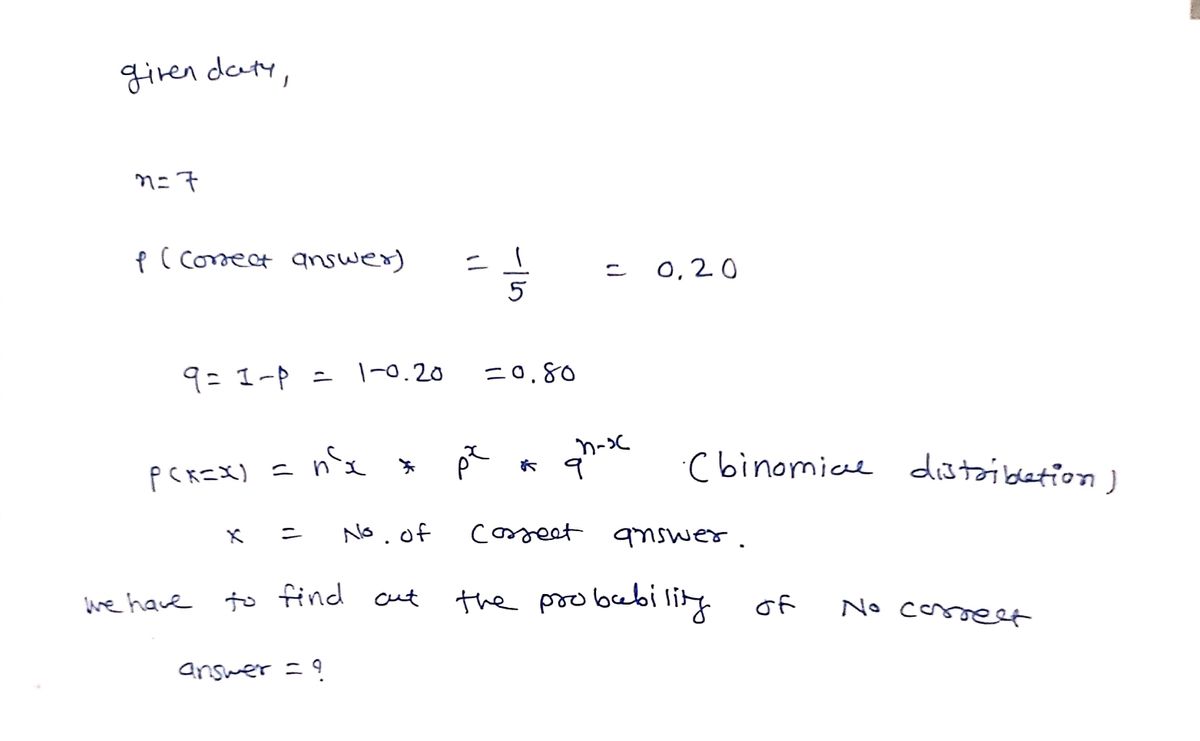 given data,
n=7
P (correct answer) = 1/5 = 0.20
q = 1-p = 1-0.20 = 0.80
P(X=x) = nCx * p^x * q^n-x (binomial distribution)
x = No. of correct answer.
we have to find out the probability of No correct
answer = ?